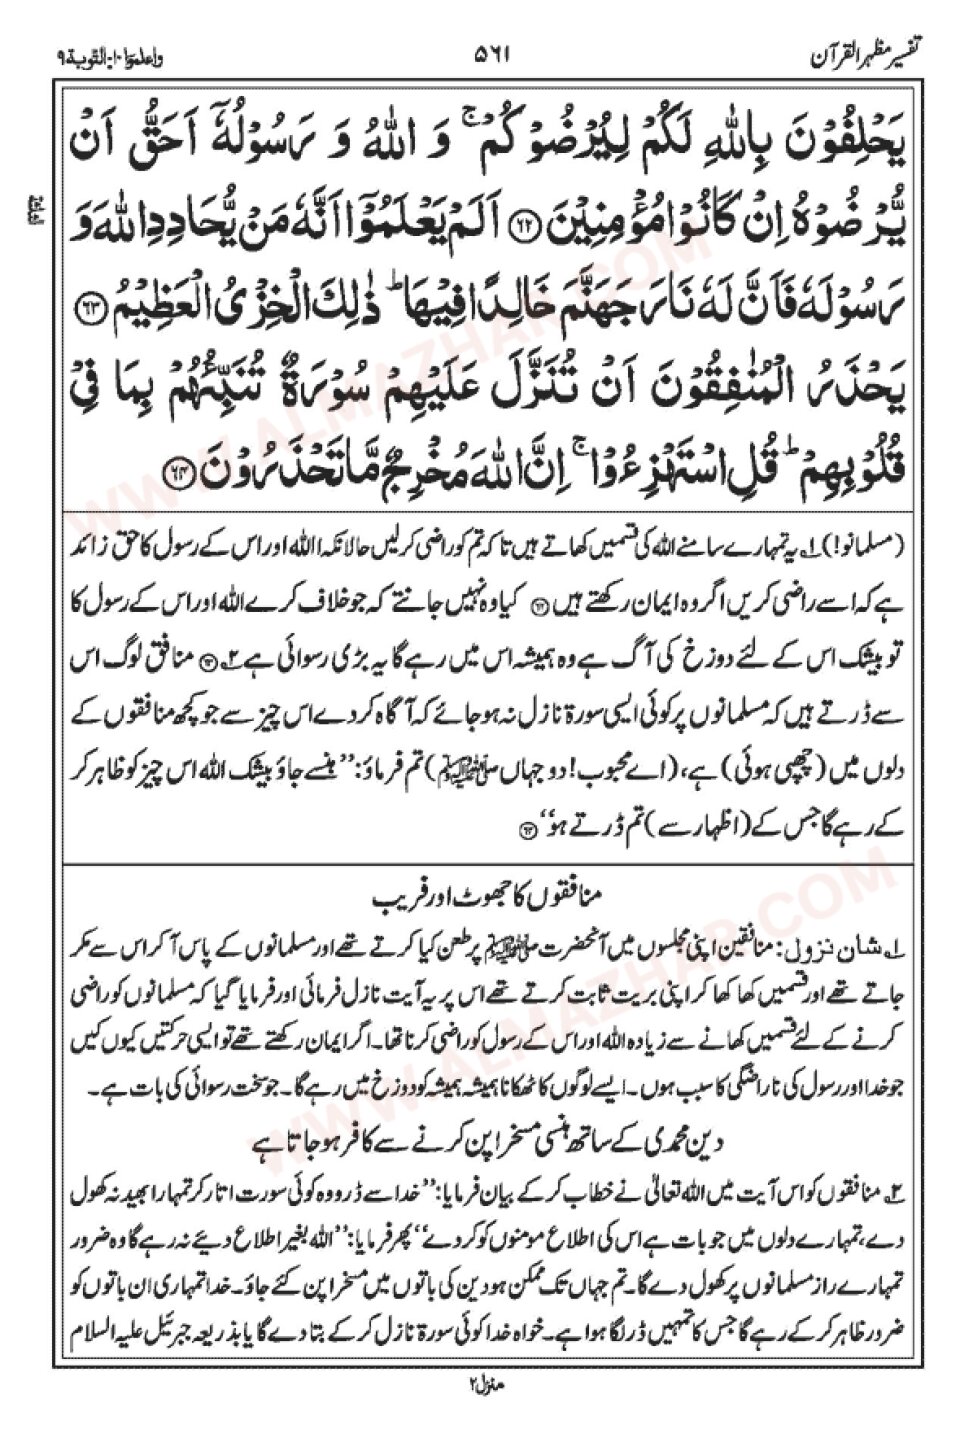 تفسیر مظہر القرآن
۵۶۱
واعلموا ۱۰: التوبة ۹
يَحْلِفُوْنَ بِاللّٰهِ لَكُمْ لِيُرْضُوْكُمْ ۚ وَ اللّٰهُ وَ رَسُوْلُهٗٓ اَحَقُّ اَنْ
يُّرْضُوْهُ اِنْ كَانُوْا مُؤْمِنِيْنَ ﴿۶۲﴾ اَلَمْ يَعْلَمُوْٓا اَنَّهٗ مَنْ يُّحَادِدِ اللّٰهَ وَ
رَسُوْلَهٗ فَاَنَّ لَهٗ نَارَ جَهَنَّمَ خَالِدًا فِيْهَا ؕ ذٰلِكَ الْخِزْيُ الْعَظِيْمُ ﴿۶۳﴾
يَحْذَرُ الْمُنٰفِقُوْنَ اَنْ تُنَزَّلَ عَلَيْهِمْ سُوْرَةٌ تُنَبِّئُهُمْ بِمَا فِيْ
قُلُوْبِهِمْ ؕ قُلِ اسْتَهْزِءُوْا ۚ اِنَّ اللّٰهَ مُخْرِجٌ مَّا تَحْذَرُوْنَ ﴿۶۴﴾
(مسلمانو!) ۱؎ یہ تمہارے سامنے اللہ کی قسمیں کھاتے ہیں تاکہ تم کو راضی کرلیں حالانکہ اللہ اور اس کے رسول کا حق زائد
ہے کہ اسے راضی کریں اگر وہ ایمان رکھتے ہیں ﴿۶۲﴾ کیا وہ نہیں جانتے کہ جو خلاف کرے اللہ اور اس کے رسول کا
تو بیشک اس کے لئے دوزخ کی آگ ہے وہ ہمیشہ اس میں رہے گا یہ بڑی رسوائی ہے ۲؎ ﴿۶۳﴾ منافق لوگ اس
سے ڈرتے ہیں کہ مسلمانوں پر کوئی ایسی سورۃ نازل نہ ہو جائے کہ آگاہ کردے اس چیز سے جو کچھ منافقوں کے
دلوں میں (چھپی ہوئی) ہے، (اے محبوب! دو جہاں ﷺ) تم فرماؤ: ”ہنسے جاؤ بیشک اللہ اس چیز کو ظاہر کر
کے رہے گا جس کے (اظہار سے) تم ڈرتے ہو“ ﴿۶۴﴾
منافقوں کا جھوٹ اور فریب
۱؎ شان نزول: منافقین اپنی مجلسوں میں آنحضرت ﷺ پر طعن کیا کرتے تھے اور مسلمانوں کے پاس آکر اس سے مکر
جاتے تھے اور قسمیں کھا کھا کر اپنی بریت ثابت کرتے تھے اس پر یہ آیت نازل فرمائی اور فرمایا گیا کہ مسلمانوں کو راضی
کرنے کے لئے قسمیں کھانے سے زیادہ اللہ اور اس کے رسول کو راضی کرنا تھا۔ اگر ایمان رکھتے تھے تو ایسی حرکتیں کیوں کیں
جو خدا اور رسول کی ناراضگی کا سبب ہوں۔ ایسے لوگوں کا ٹھکانا ہمیشہ ہمیشہ کو دوزخ میں رہے گا۔ جو سخت رسوائی کی بات ہے۔
دین محمدی کے ساتھ ہنسی مسخراپن کرنے سے کافر ہو جاتا ہے
۲؎ منافقوں کو اس آیت میں اللہ تعالیٰ نے خطاب کرکے بیان فرمایا: ”خدا سے ڈرو وہ کوئی سورت اتار کر تمہارا بھید نہ کھول
دے، تمہارے دلوں میں جو بات ہے اس کی اطلاع مومنوں کو کردے“ پھر فرمایا: ”اللہ بغیر اطلاع دیئے نہ رہے گا وہ ضرور
تمہارے راز مسلمانوں پر کھول دے گا۔ تم جہاں تک ممکن ہو دین کی باتوں میں مسخراپن کئے جاؤ۔ خدا تمہاری ان باتوں کو
ضرور ظاہر کرکے رہے گا جس کا تمہیں ڈر لگا ہوا ہے۔ خواہ خدا کوئی سورۃ نازل کرکے بتا دے گا یا بذریعہ جبرئیل علیہ السلام
منزل ۲
WWW.ALMAZHAR.COM
WWW.ALMAZHAR.COM